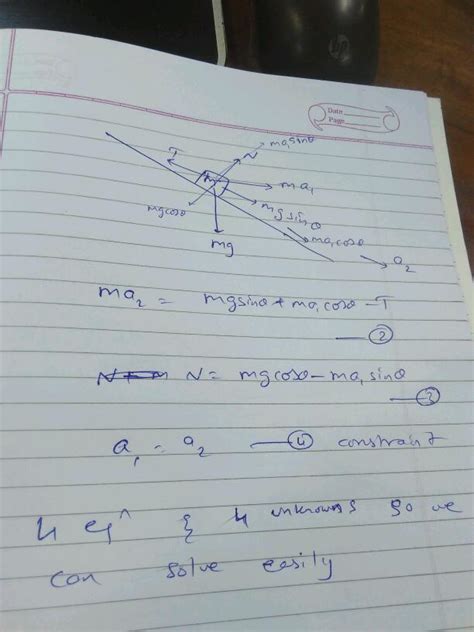 Date
Page
ma₁sinθ
N
T
m
ma₁
mgcosθ
mgsinθ
ma₁cosθ
mg
a₂
ma₂ = mgsinθ + ma₁cosθ - T
②
N = mgcosθ - ma₁sinθ
③
a₁ = a₂ — ④ constraint
4 eqⁿ & 4 unknowns so we
can solve easily